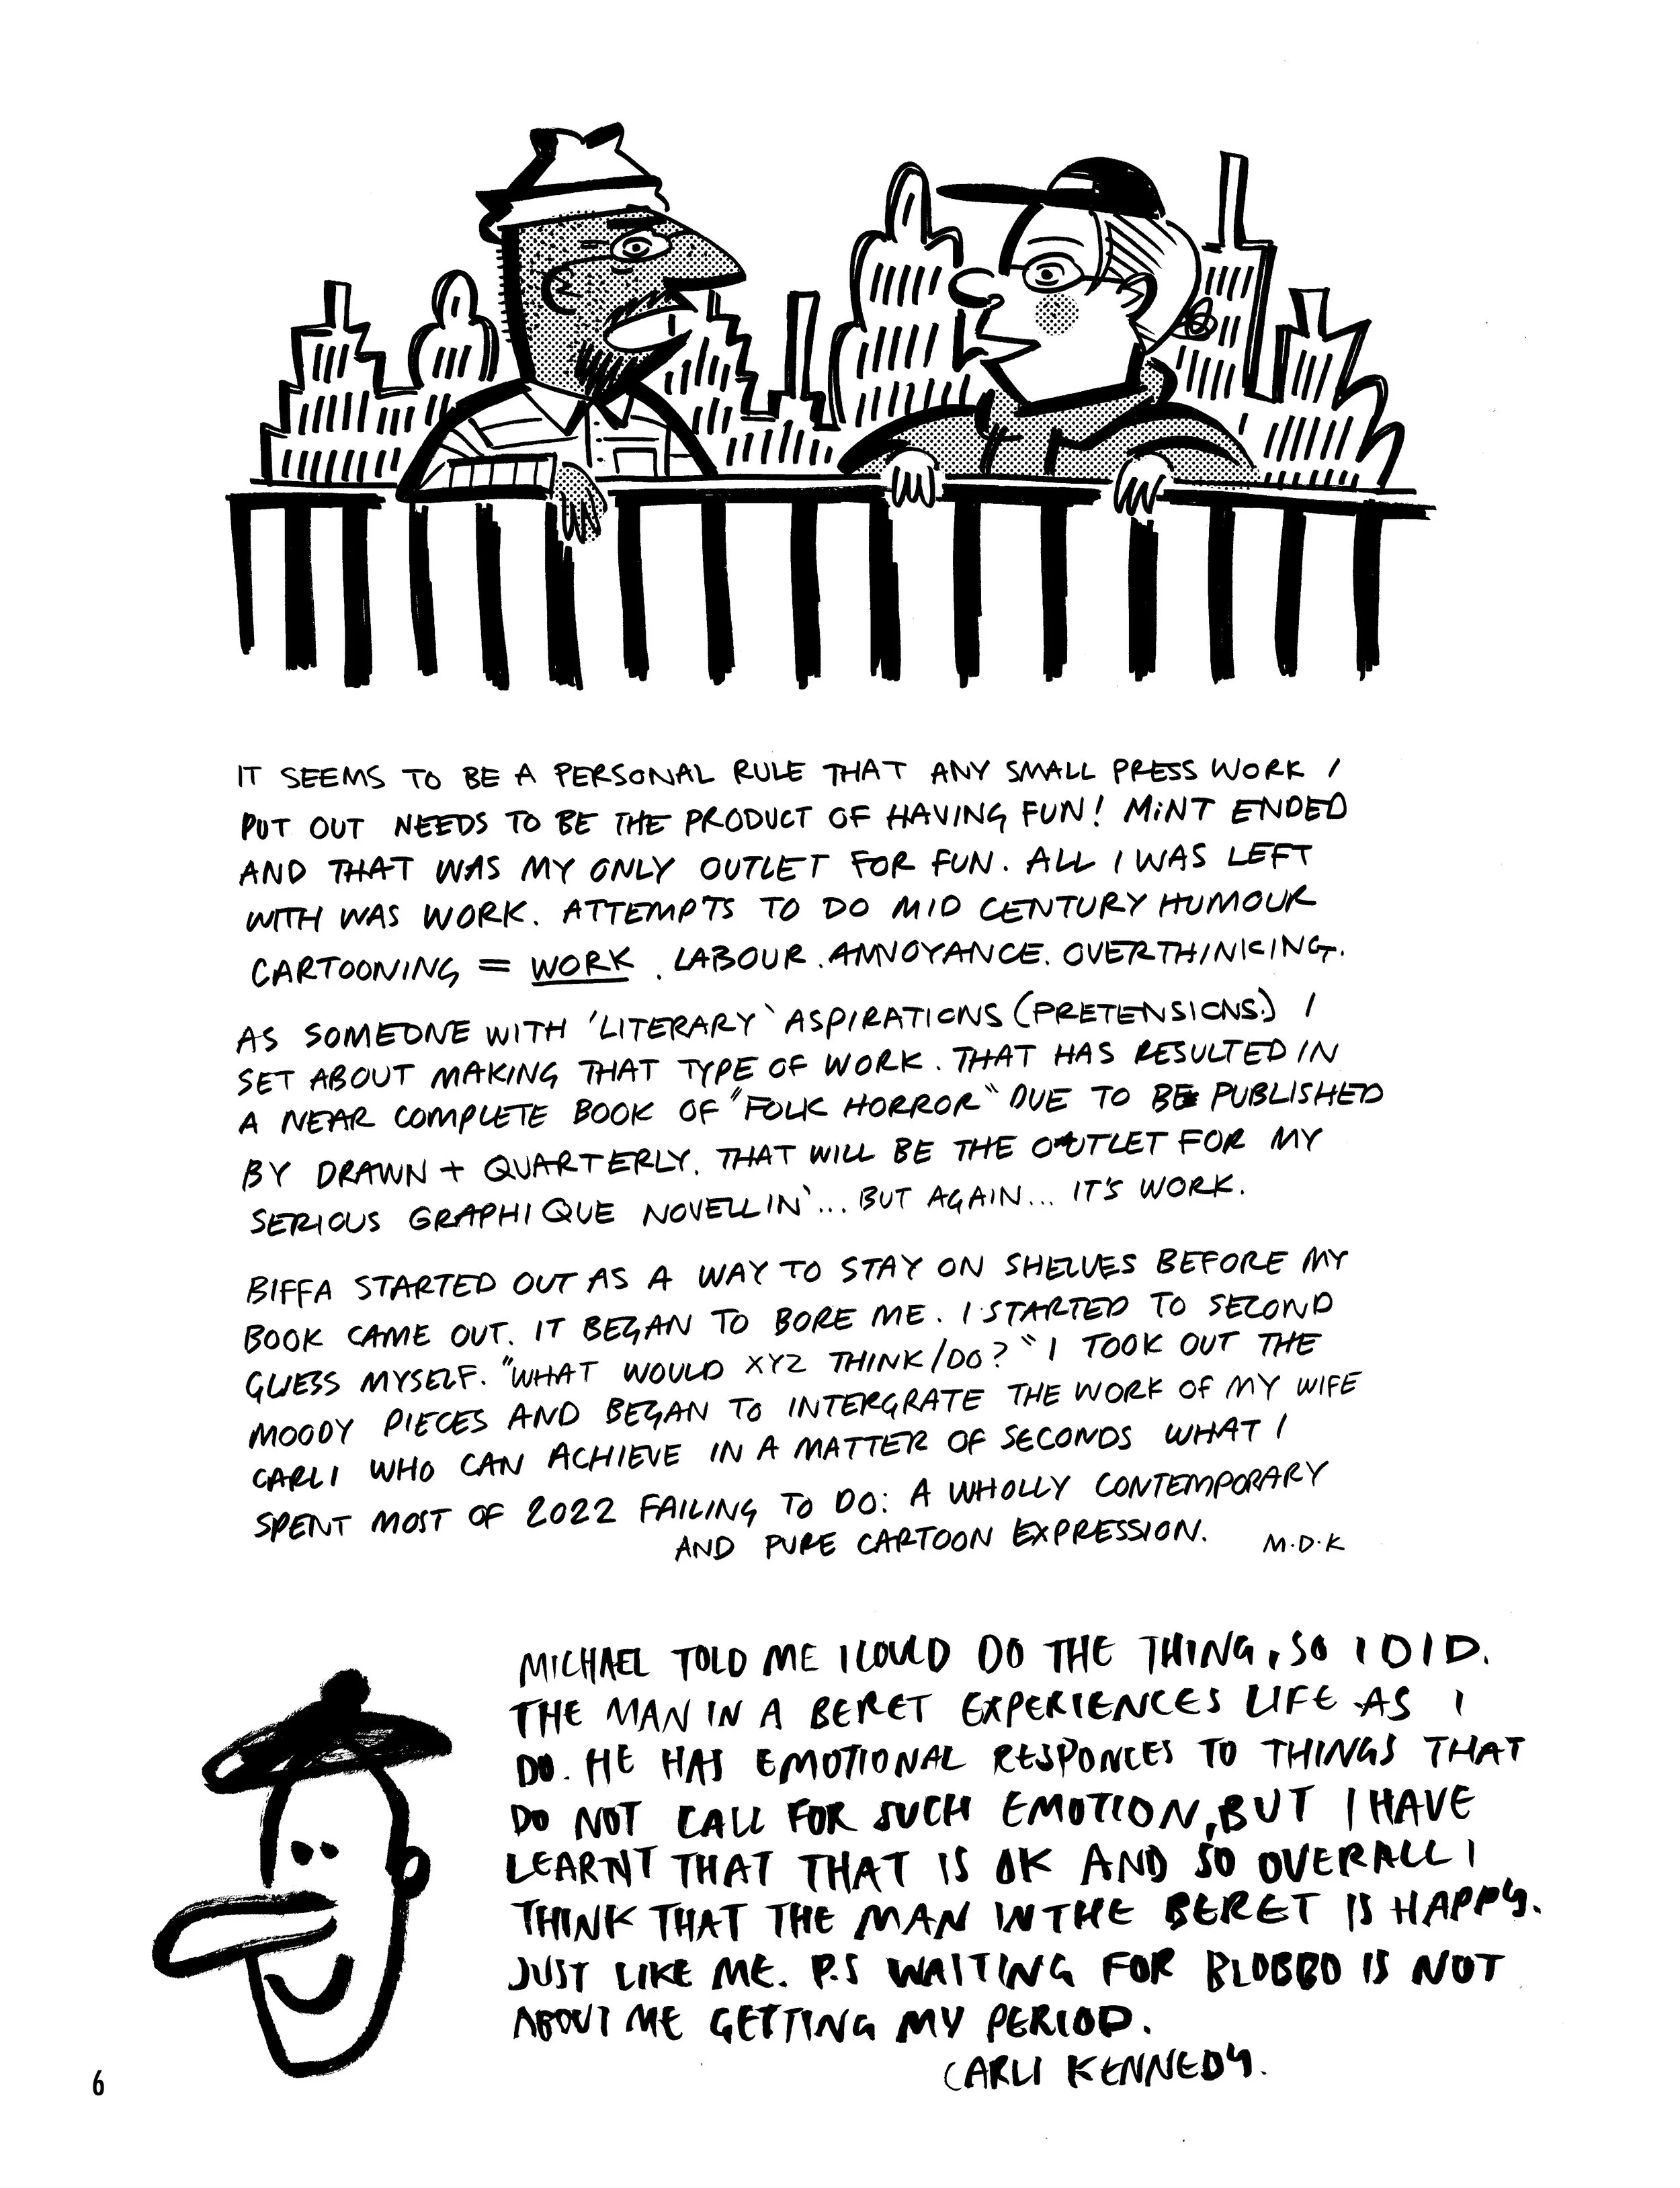 IT SEEMS TO BE A PERSONAL RULE THAT ANY SMALL PRESS WORK I
PUT OUT NEEDS TO BE THE PRODUCT OF HAVING FUN! MINT ENDED
AND THAT WAS MY ONLY OUTLET FOR FUN. ALL I WAS LEFT
WITH WAS WORK. ATTEMPTS TO DO MID CENTURY HUMOUR
CARTOONING = WORK. LABOUR. ANNOYANCE. OVERTHINKING.
AS SOMEONE WITH 'LITERARY' ASPIRATIONS (PRETENSIONS.) I
SET ABOUT MAKING THAT TYPE OF WORK. THAT HAS RESULTED IN
A NEAR COMPLETE BOOK OF "FOLK HORROR" DUE TO BE PUBLISHED
BY DRAWN + QUARTERLY. THAT WILL BE THE OUTLET FOR MY
SERIOUS GRAPHIQUE NOVELLIN'... BUT AGAIN... IT'S WORK.
BIFFA STARTED OUT AS A WAY TO STAY ON SHELVES BEFORE MY
BOOK CAME OUT. IT BEGAN TO BORE ME. I STARTED TO SECOND
GUESS MYSELF. "WHAT WOULD XYZ THINK/DO?" I TOOK OUT THE
MOODY PIECES AND BEGAN TO INTERGRATE THE WORK OF MY WIFE
CARLI WHO CAN ACHIEVE IN A MATTER OF SECONDS WHAT I
SPENT MOST OF 2022 FAILING TO DO: A WHOLLY CONTEMPORARY
AND PURE CARTOON EXPRESSION. M.D.K
MICHAEL TOLD ME I COULD DO THE THING, SO I DID.
THE MAN IN A BERET EXPERIENCES LIFE AS I
DO. HE HAS EMOTIONAL RESPONCES TO THINGS THAT
DO NOT CALL FOR SUCH EMOTION, BUT I HAVE
LEARNT THAT THAT IS OK AND SO OVERALL I
THINK THAT THE MAN IN THE BERET IS HAPPY.
JUST LIKE ME. P.S WAITING FOR BLOBBO IS NOT
ABOUT ME GETTING MY PERIOD.
CARLI KENNEDY.
6